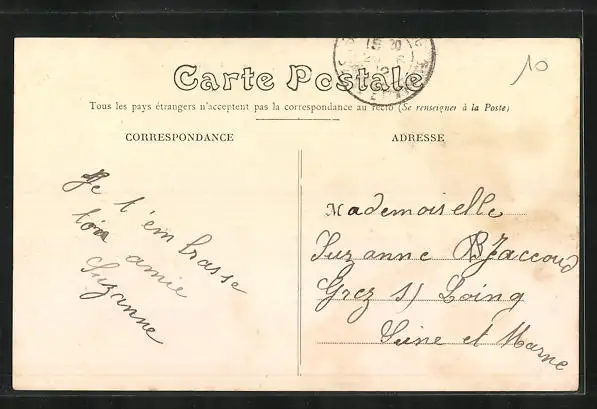 10
Carte Postale
Tous les pays étrangers n'acceptent pas la correspondance au recto (Se renseigner à la Poste)
CORRESPONDANCE
Je t'embrasse
ton amie
Suzanne
ADRESSE
Mademoiselle
Suzanne B Jaccoud
Grez s/ Loing
Seine et Marne